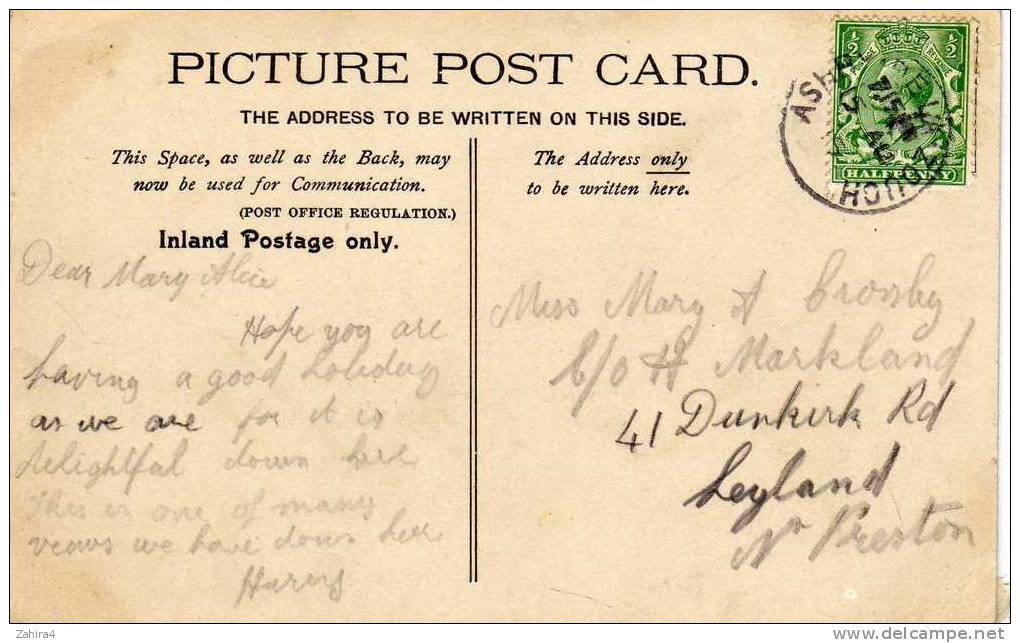 PICTURE POST CARD.
THE ADDRESS TO BE WRITTEN ON THIS SIDE.
This Space, as well as the Back, may
now be used for Communication.
(POST OFFICE REGULATION.)
Inland Postage only.
The Address only
to be written here.
½ ½
POSTAGE REVENUE
HALFPENNY
Dear Mary Alice
Hope you are
having a good holiday
as we are for it is
delightful down here
This is one of many
views we have down here
Miss Mary A Crossby
c/o H Markland
41 Dunkirk Rd
Leyland
Nr Preston
Zahira4
delcampe.net